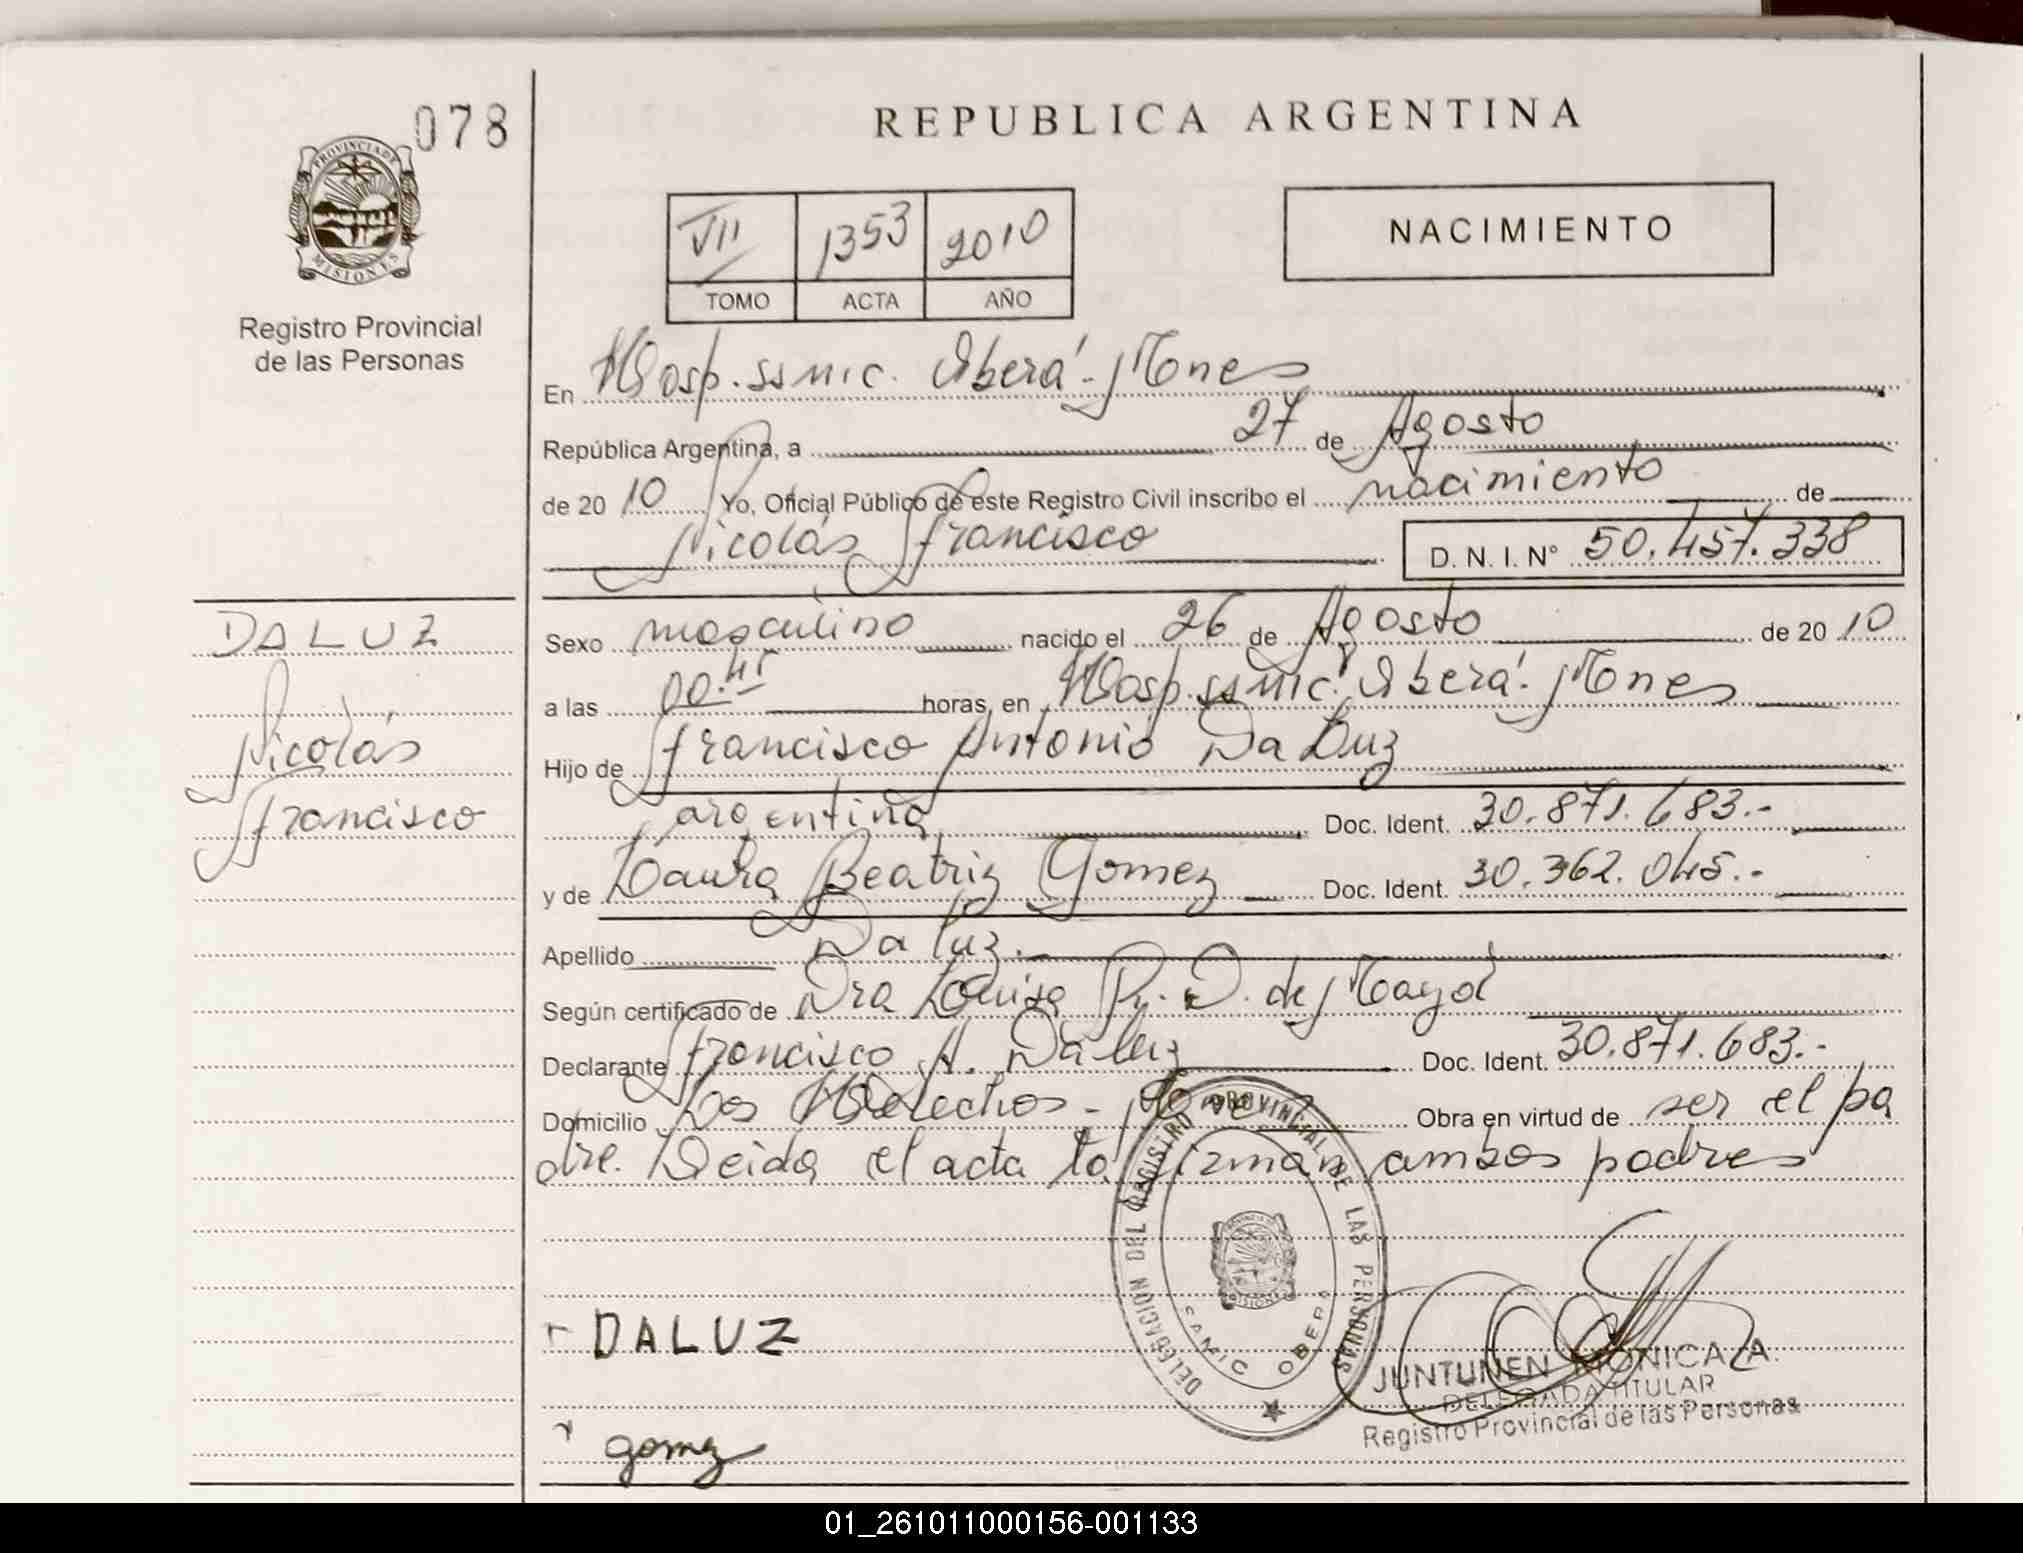 078
REPUBLICA ARGENTINA
PROVINCIA DE
MISIONES
Registro Provincial
de las Personas
VII 1353 2010
TOMO ACTA AÑO
NACIMIENTO
En Hosp. ssmic. Oberá - Mones
República Argentina, a 27 de Agosto
de 20 10 Yo, Oficial Público de este Registro Civil inscribo el nacimiento de
Nicolás Francisco D. N. I. N° 50.457.338
DALUZ
Nicolás
Francisco
Sexo masculino nacido el 26 de Agosto de 20 10
a las 00.45 horas, en Hosp. ssmic. Oberá. Mones
Hijo de Francisco Antonio Da Luz
argentina Doc. Ident. 30.871.683.-
y de Laura Beatriz Gomez Doc. Ident. 30.362.045.-
Apellido Da luz.
Según certificado de Dra Luisa D. de Mayol
Declarante Francisco A. Da luz Doc. Ident. 30.871.683.-
Domicilio Los Helechos - Obra en virtud de ser el pa
dre. Leida el acta la firman ambos padres
DELEGACION DEL REGISTRO PROVINCIAL DE LAS PERSONAS
SAMIC OBERA
DALUZ
gomez
JUNTUNEN MONICA A.
DELEGADA TITULAR
Registro Provincial de las Personas
01_261011000156-001133